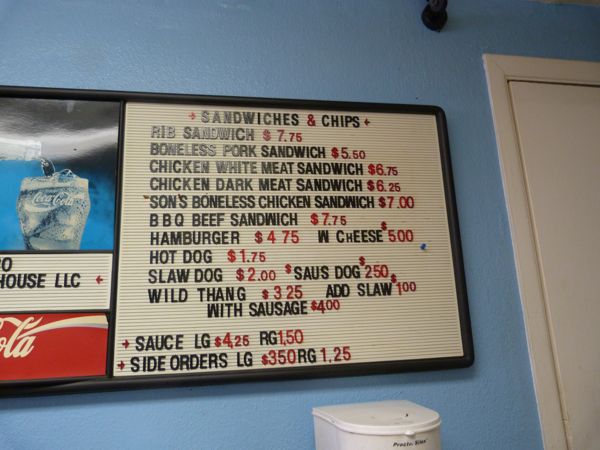 SANDWICHES & CHIPS
RIB SANDWICH $7.75
BONELESS PORK SANDWICH $5.50
CHICKEN WHITE MEAT SANDWICH $6.75
CHICKEN DARK MEAT SANDWICH $6.25
SON'S BONELESS CHICKEN SANDWICH $7.00
BBQ BEEF SANDWICH $7.75
HAMBURGER $4 75 W CHEESE $500
HOT DOG $1.75
SLAW DOG $2.00 $SAUS DOG 250
WILD THANG $3 25 ADD SLAW $100
WITH SAUSAGE $400
SAUCE LG $4,25 RG 1,50
SIDE ORDERS LG $350 RG 1,25
Coca-Cola
O
HOUSE LLC
ola
Proctor Silex